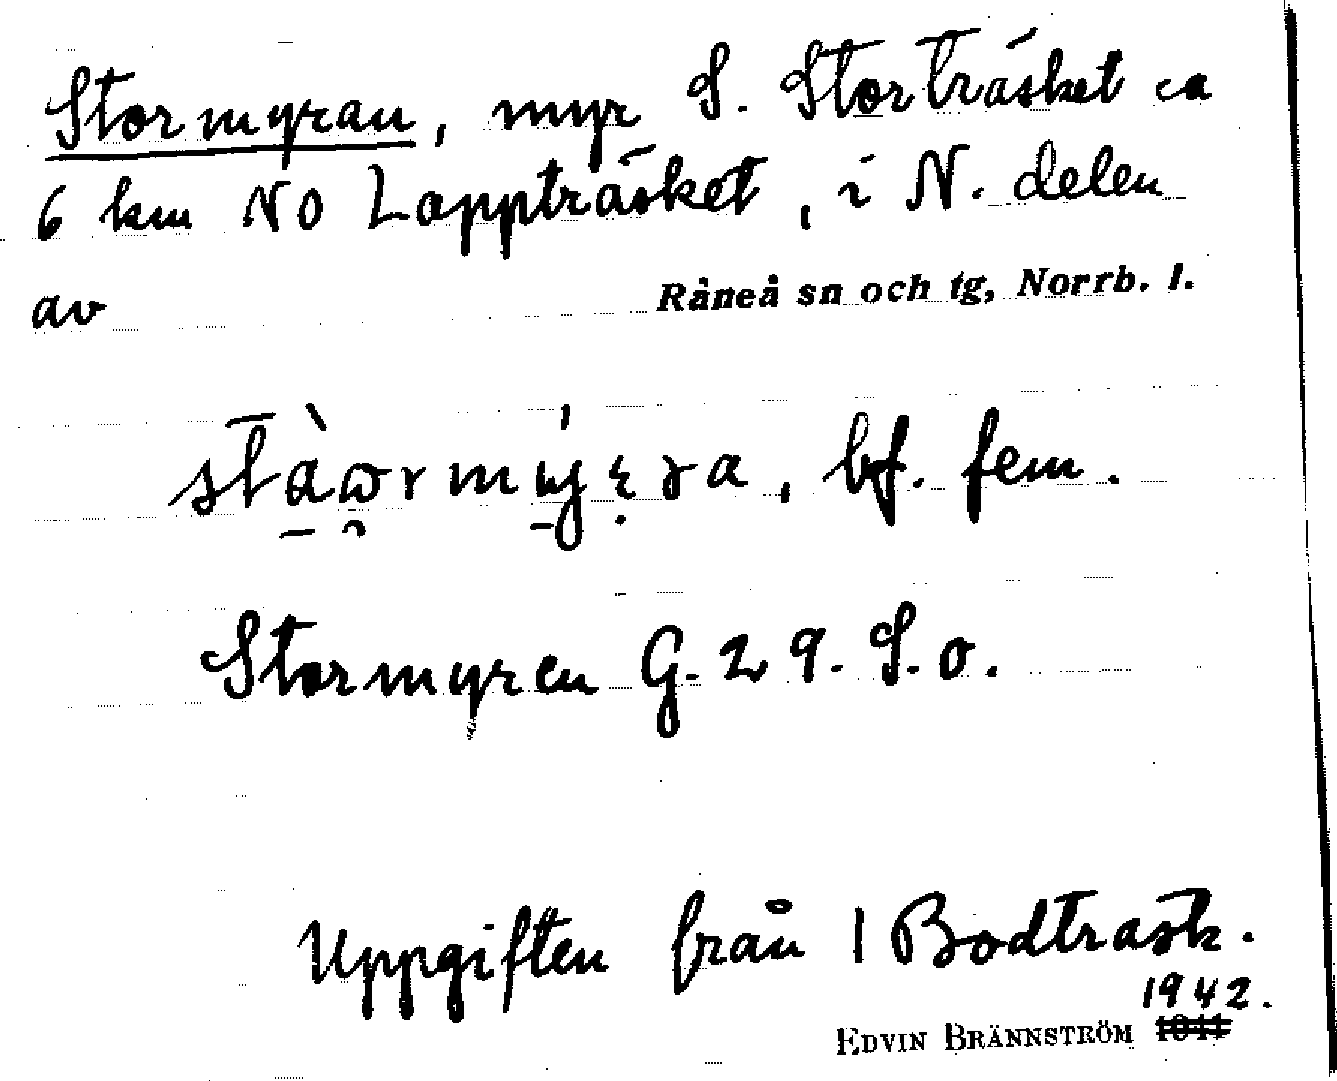 Stormyran, myr S. Storträsket ca
6 km NO Lappträsket, i N. delen
av Råneå sn och tg, Norrb. l.
bf. fem.
Stormyren G. 29. S. o.
Uppgiften från 1 Bodträsk.
1942.
EDVIN BRÄNNSTRÖM 1941